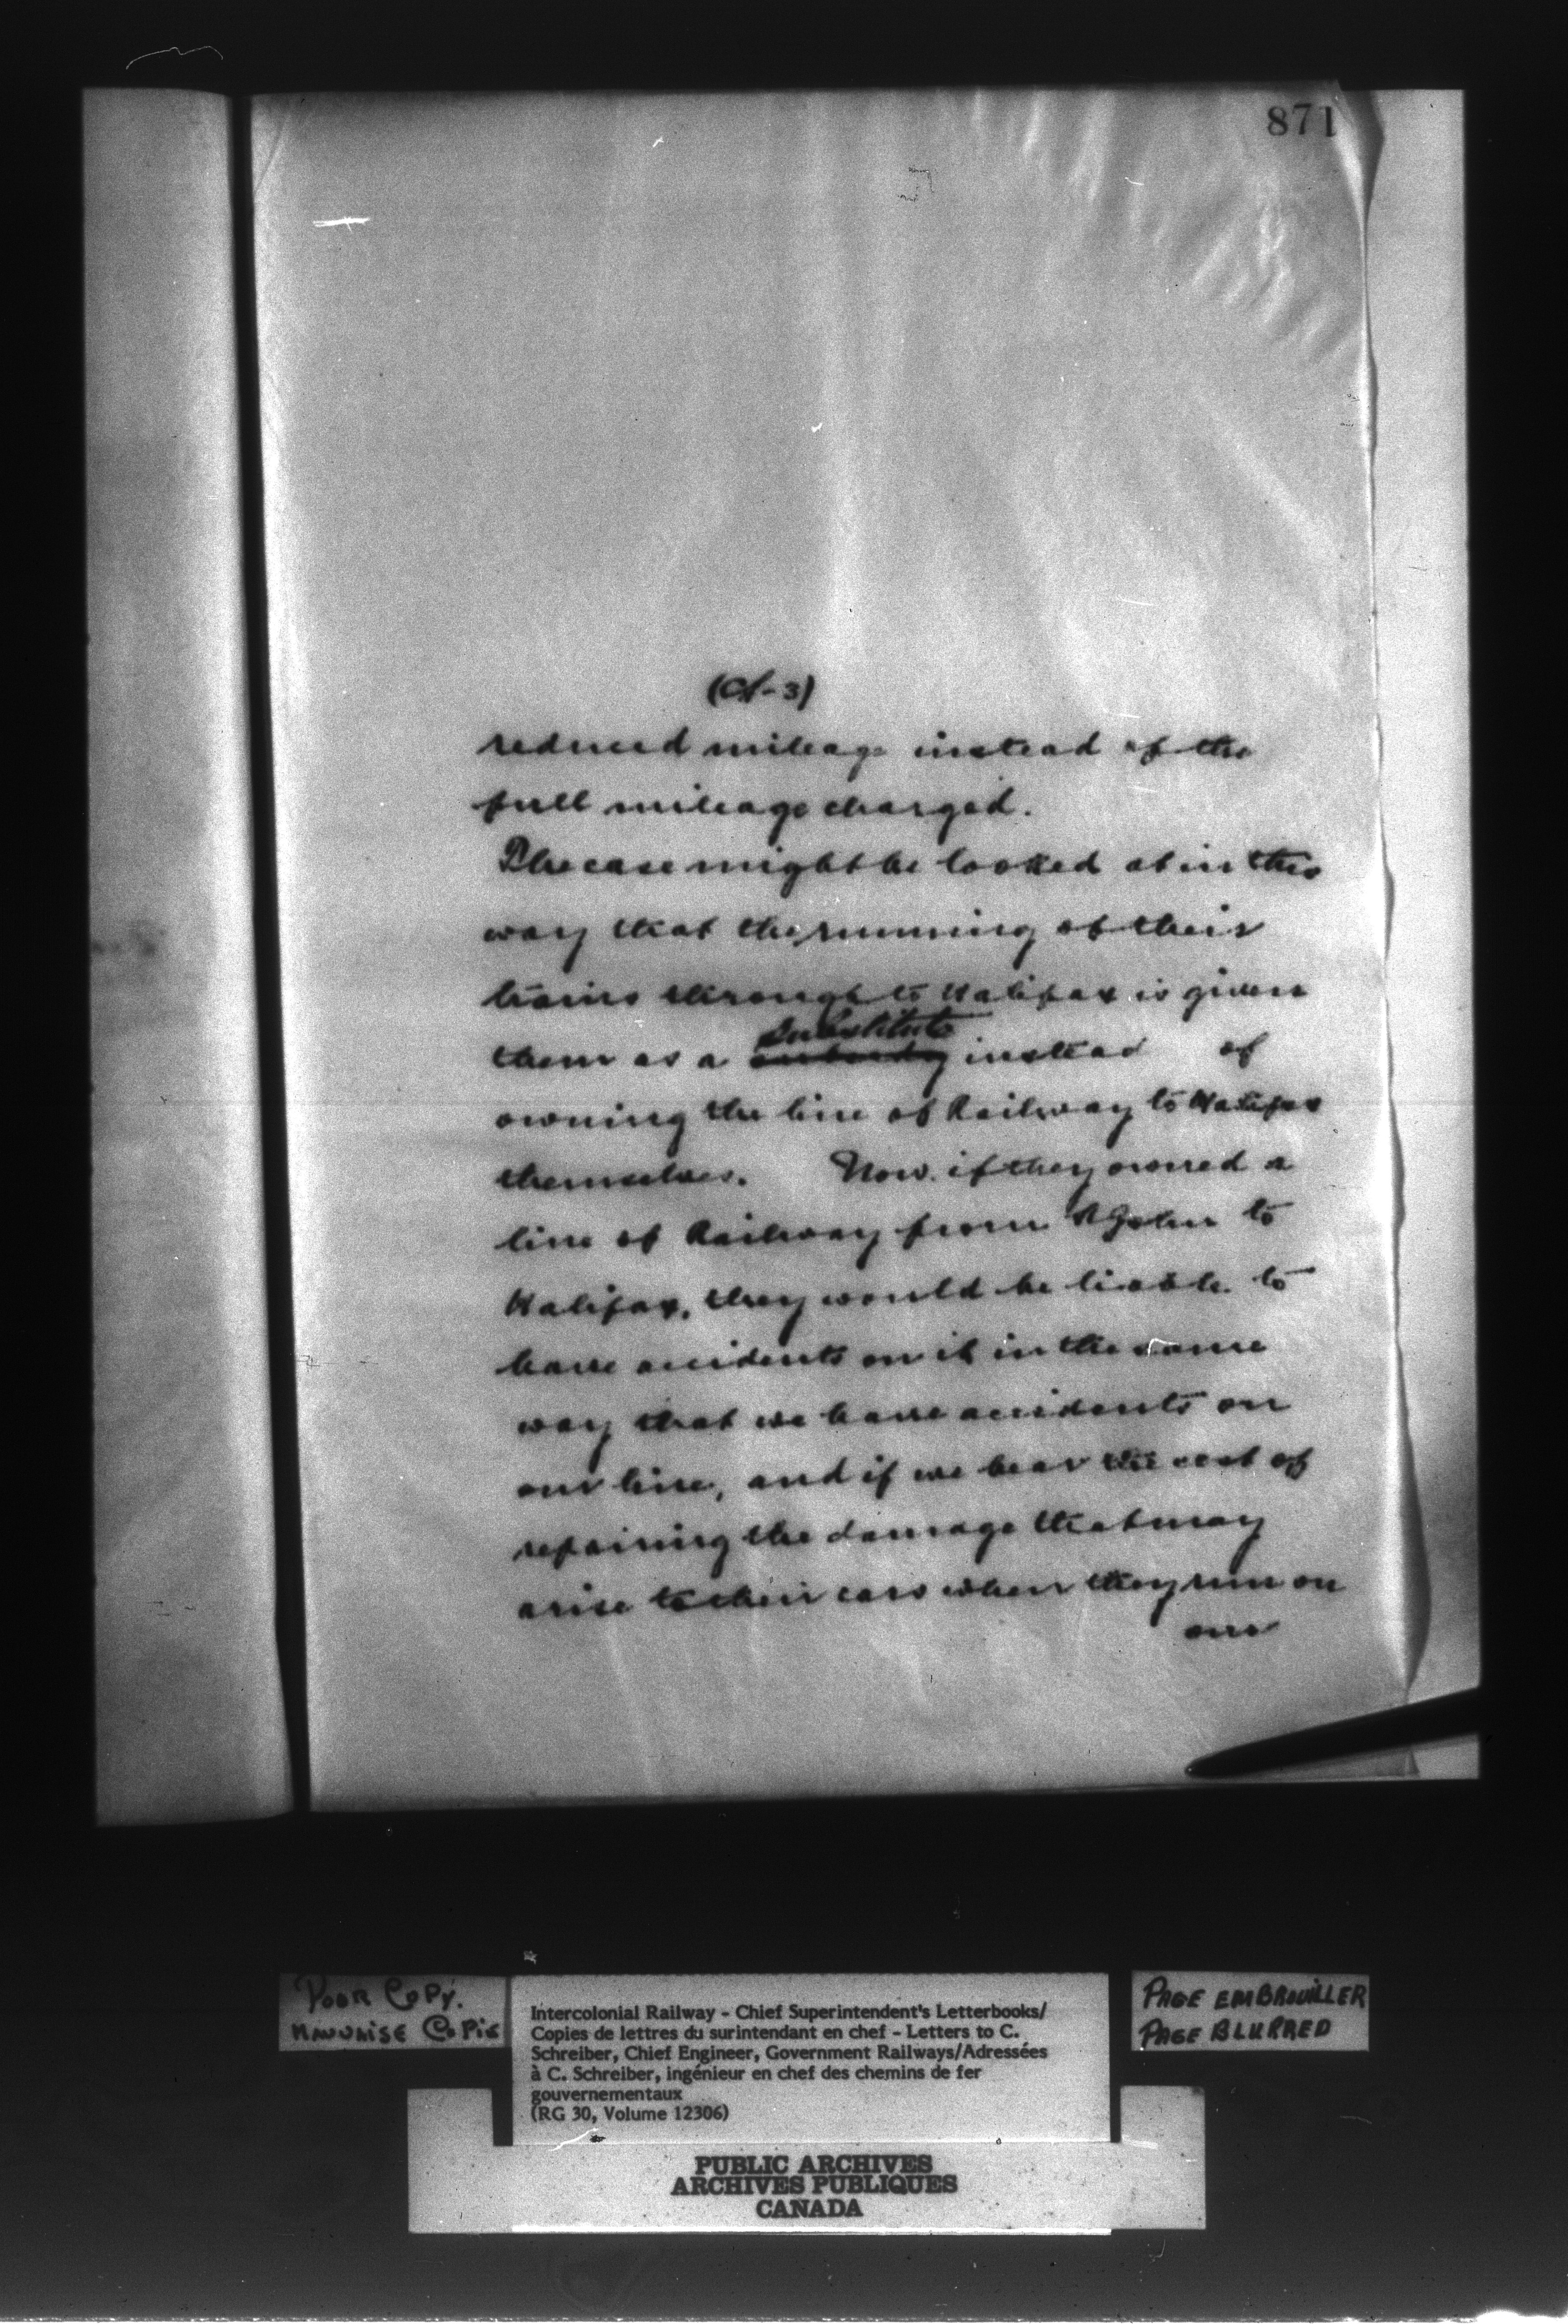 871
(CS-3)
reduced mileage instead of the
full mileage charged.
The case might be looked at in this
way that the running of their
trains through to Halifax is given
substitute
them as a subsidy instead of
owning the line of Railway to Halifax
themselves. Now if they owned a
line of Railway from St John to
Halifax, they would be liable to
have accidents on it in the same
way that we have accidents on
our line, and if we bear the cost of
repairing the damage that may
arise to their cars when they run on
our
POOR COPY.
MAUVAISE COPIE
Intercolonial Railway - Chief Superintendent's Letterbooks/
Copies de lettres du surintendant en chef - Letters to C.
Schreiber, Chief Engineer, Government Railways/Adressées
à C. Schreiber, ingénieur en chef des chemins de fer
gouvernementaux
(RG 30, Volume 12306)
PAGE EMBROUILLER
PAGE BLURRED
PUBLIC ARCHIVES
ARCHIVES PUBLIQUES
CANADA